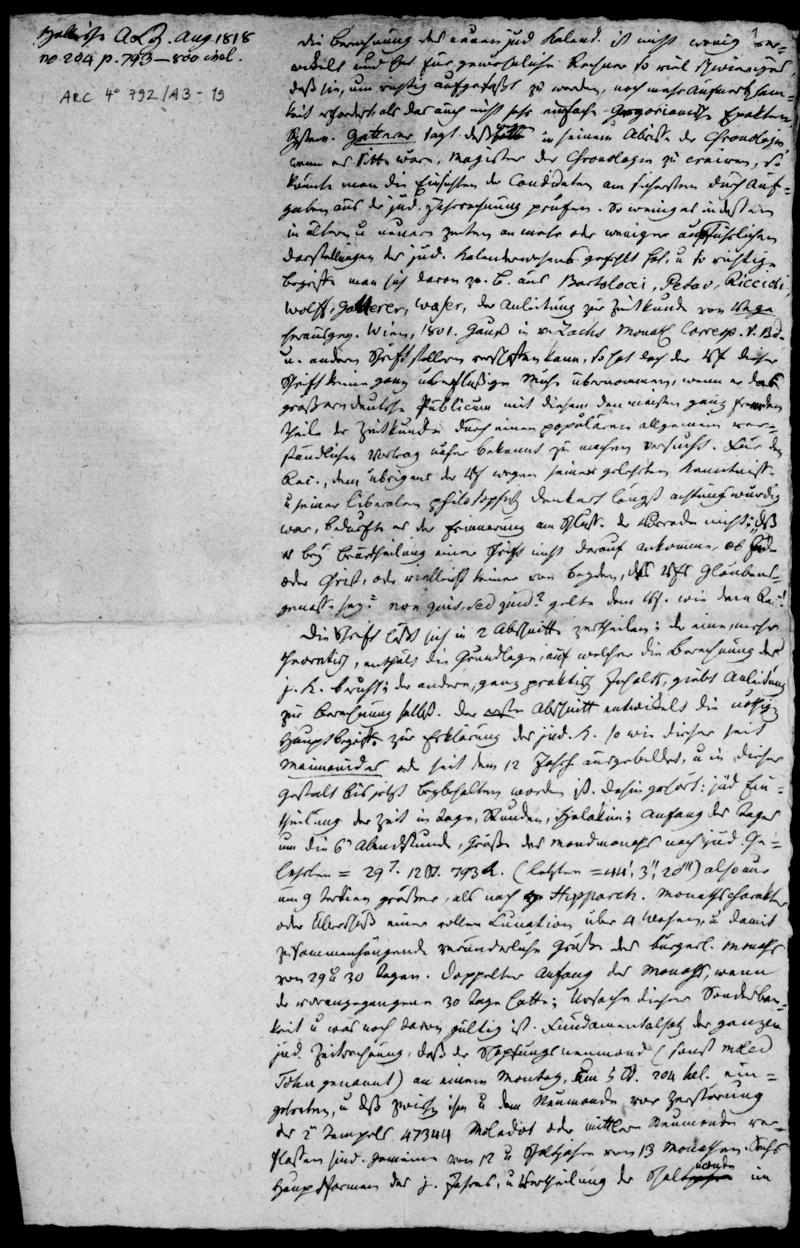 Hallische A L Z. Aug 1818
no 204 p. 793–800 incl.
ARC 4° 792/A3-19
1
Die Berechnung des neuen jüd Kalend. ist nicht wenig ver-
wickelt und hat für gewöhnliche Rechner so viel Schwieriges,
daß sie, um richtig aufgefaßt zu werden, noch mehr Aufmerksam-
keit erfordert als das auch nicht sehr einfache Gregorianische Epakten
System. Gatterer sagt deßhalb in seinem Abrisse der Chronologie,
wenn es Sitte wäre, Magister der Chronologie zu creiren, so
könnte man die Einsichten der Candidaten am sichersten durch Auf-
gaben aus der jüd. Zeitrechnung prüfen. So wenig es indeß in
in ältern u neuern Zeiten an mehr oder weniger ausführlichen
Darstellungen des jüd. Kalenderwesens gefehlt hat, u so richtige
Begriffe man sich davon z. B. aus Bartolocci, Petav, Riccioli,
Wolff, Gatterer, Waser, der Anleitung zur Zeitkunde von Vega
herausgeg. Wien, 1801. Gauß in v. Zachs Monatl Corresp. V. Bd.
u. andern Schriftstellern verschaffen kann, so hat doch der Vf dieser
Schrift keine ganz überflüßige Mühe übernommen, wenn er das
größere deutsche Publicum mit diesem den meisten ganz fremden
Theile der Zeitkunde durch einen populären allgemein ver-
ständlichen Vortrag näher bekannt zu machen versucht. Für den
Rec., dem übrigens der Vf wegen seiner gelehrten Kenntniß
u seiner liberalen philosophisch Denkart längst achtungswürdig
war, bedurfte es der Erinnerung am Schluß der Vorrede nicht: daß
es bey Beurtheilung einer Schrift nicht darauf ankomme, ob Jude
oder Christ, oder vielleicht keiner von beyden, des Vfs Glaubens-
genosse sey? non quis, sed quid? gelte dem Vf. wie dem Rec!
Die Schrift läßt sich in 2 Abschnitte zertheilen: der eine, mehr
theoretisch, enthält die Grundlage, auf welcher die Berechnung des
j. K. beruht; der andere, ganz praktisch Inhalts, giebt Anleitung
zur Berechnung selbst. Der erste Abschnitt entwickelt die nöthig
Hauptbegriffe zur Erklärung des jüd. K. so wie dieser seit
Maimonides od seit dem 12 Jahrh ausgebildet, u in dieser
Gestalt bis jetzt beybehalten worden ist. Dahin gehört: jüd Ein-
theilung der Zeit in Tage, Stunden, Chelakim; Anfang des Tages
um die 6te Abendstunde, Größe des Mondmonaths nach jüd. Ge-
lehrten = 29 T. 12 St. 793 Ch. (letztere = 44', 3'', 20''') also nur
um 9 Tertien größer, als nach Hipparch. Monathscharakter
oder Überschuß einer vollen Lunation über 4 Wochen, u damit
zusammenhängende veränderliche Größe des bürgerl. Monaths
von 29 u 30 Tagen. Doppelter Anfang des Monaths, wenn
der vorangegangene 30 Tage hatte; Ursache dieser Sonderbar-
keit u was noch davon gültig ist. Fundamentalsatz der ganzen
jüd. Zeitrechnung, daß der Schöpfungsneumond (sonst Moled
Tohu genannt) an einem Montag, um 5 St. 204 hel. ein-
getreten, u daß zwisch ihm u dem Neumonde vor Zerstörung
des 2n Tempels 47344 Moladot oder mittlere Neumonde ver-
flossen sind. Gemeine von 12 u Schaltjahre von 13 Monathen. Sechs
Hauptformen des j. Jahres, u Vertheilung der Schaltmonde im